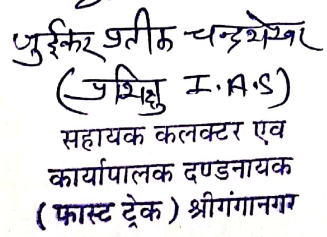 जुईकर प्रतीक चन्द्रशेखर
(प्रशिक्षु I.A.S)
सहायक कलक्टर एव
कार्यापालक दण्डनायक
( फास्ट ट्रेक ) श्रीगंगानगर